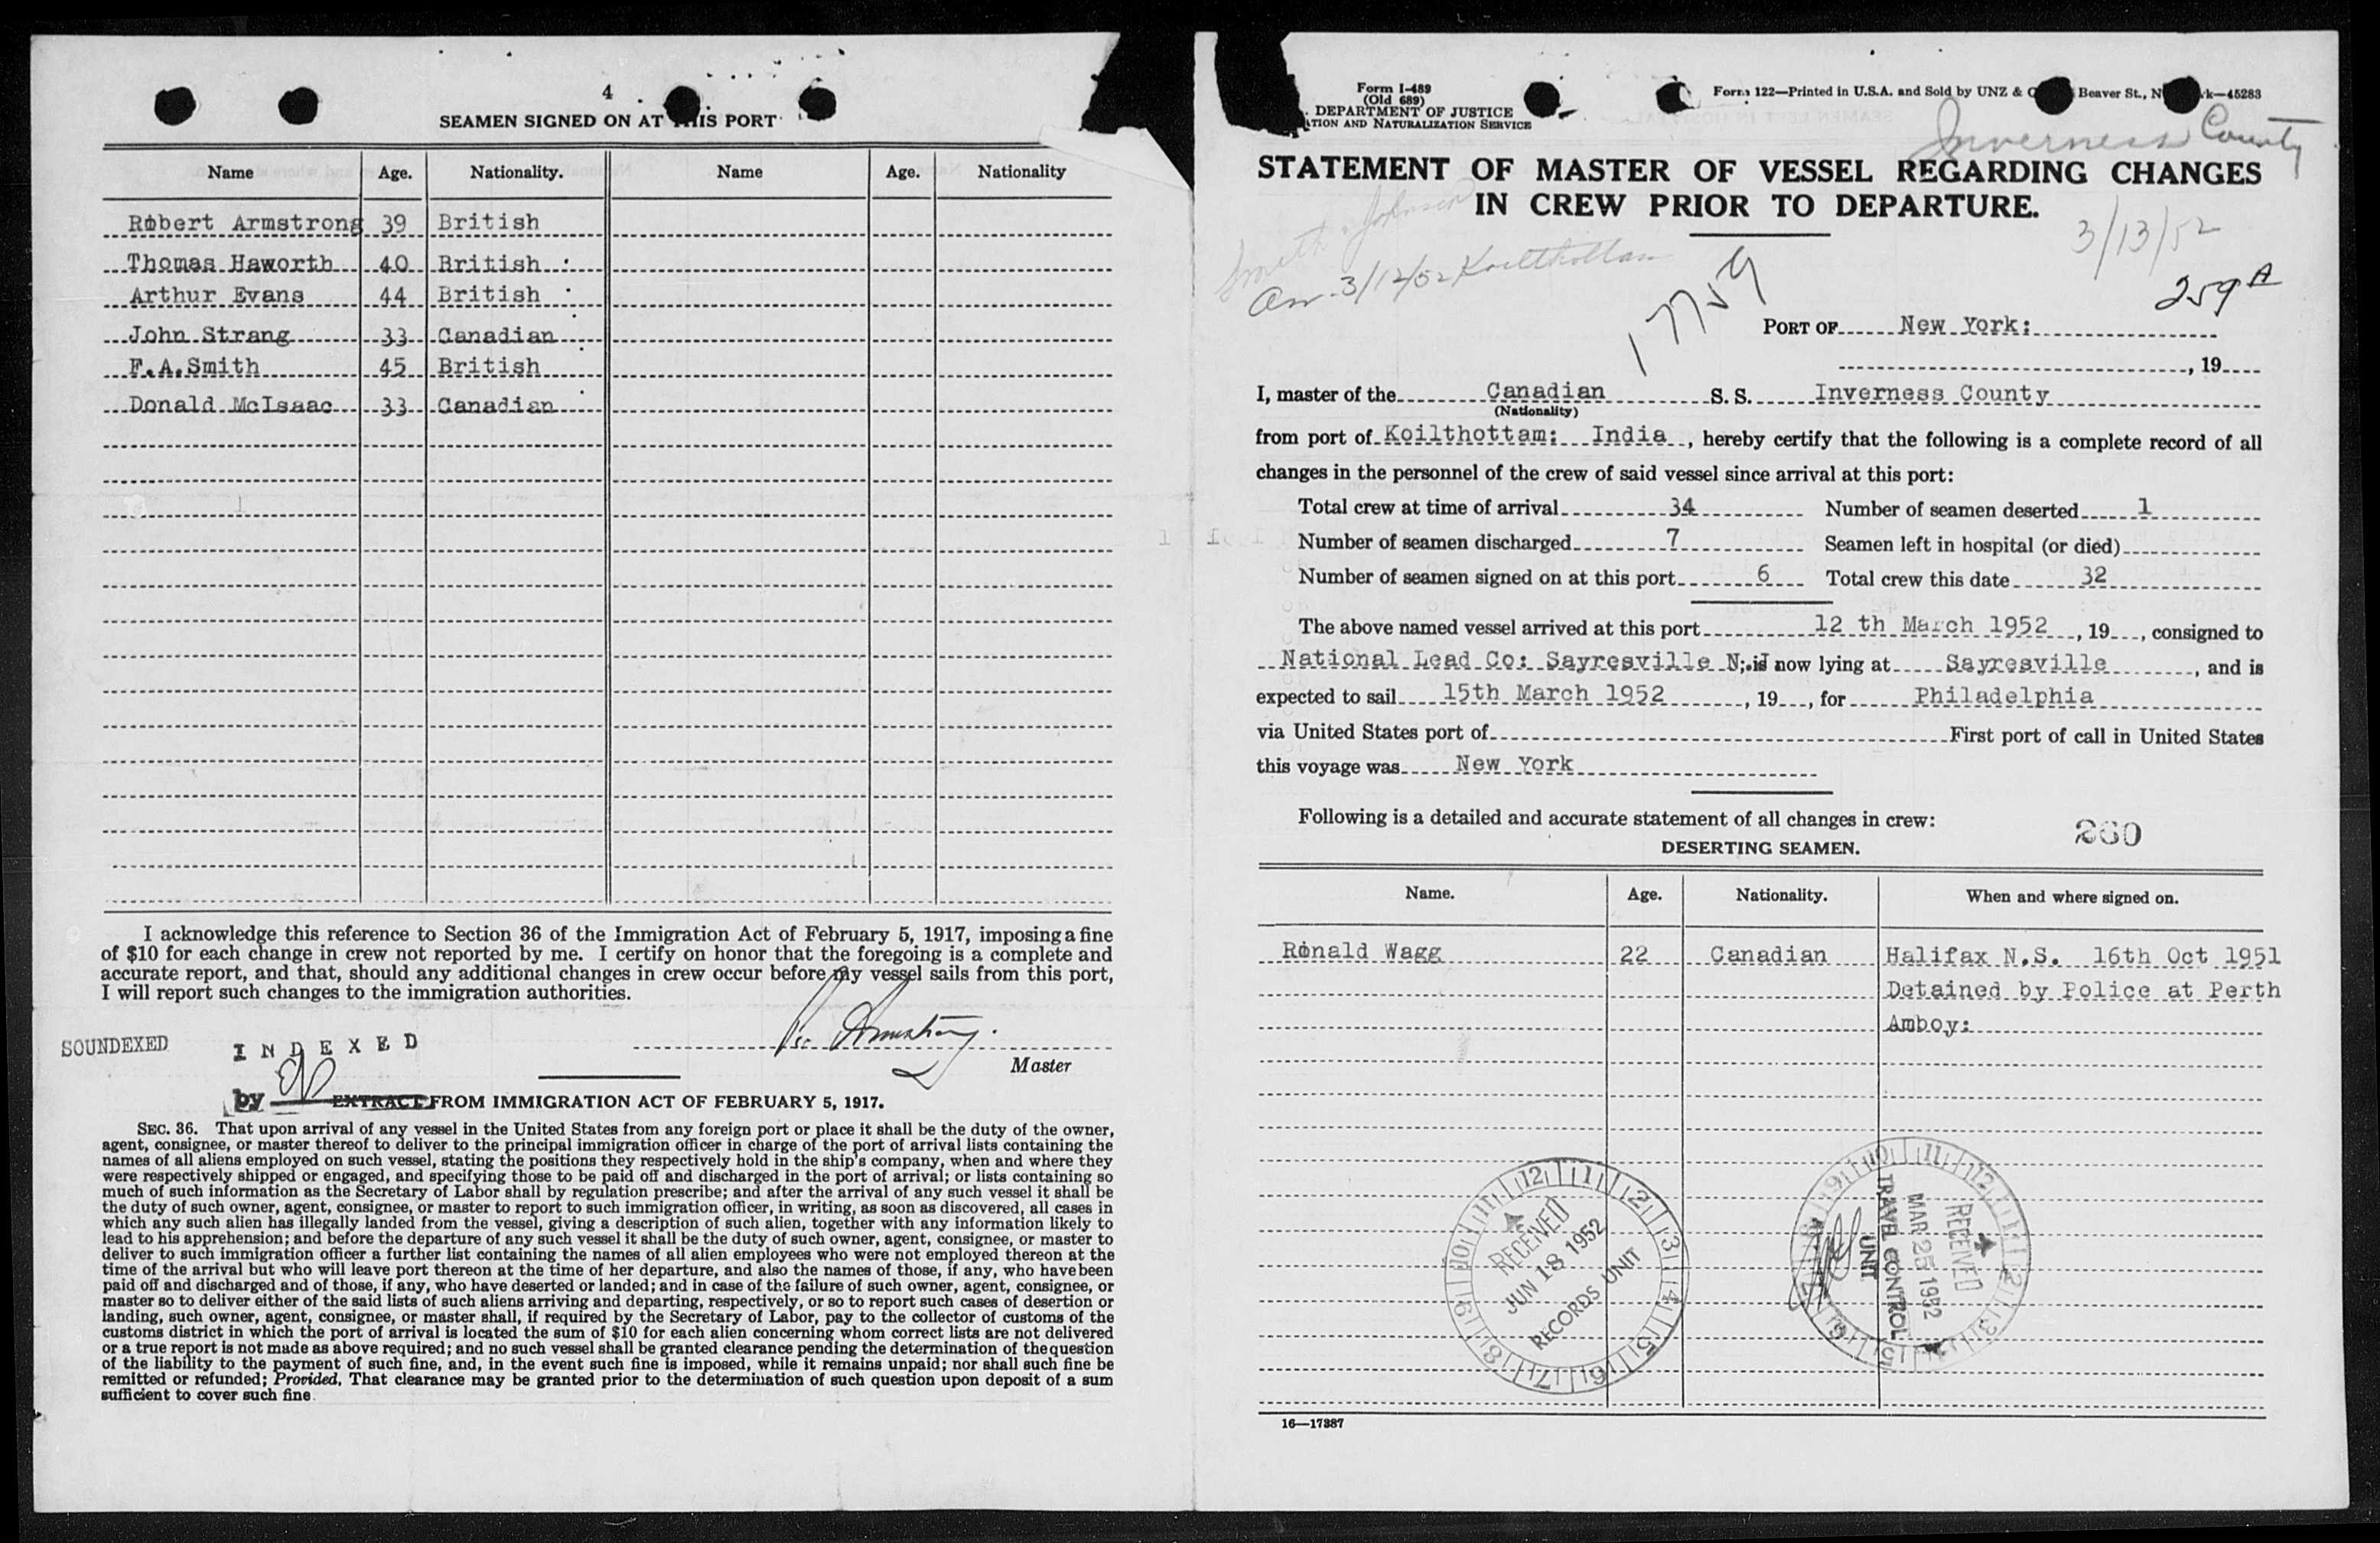 4
SEAMEN SIGNED ON AT THIS PORT
Name Age. Nationality. Name Age. Nationality
Robert Armstrong 39 British
Thomas Haworth 40 British
Arthur Evans 44 British
John Strang 33 Canadian
F.A.Smith 45 British
Donald McIsaac 33 Canadian
I acknowledge this reference to Section 36 of the Immigration Act of February 5, 1917, imposing a fine
of $10 for each change in crew not reported by me. I certify on honor that the foregoing is a complete and
accurate report, and that, should any additional changes in crew occur before my vessel sails from this port,
I will report such changes to the immigration authorities.
SOUNDEXED
INDEXED
Armstrong.
Master
by
EXTRACT FROM IMMIGRATION ACT OF FEBRUARY 5, 1917.
SEC. 36. That upon arrival of any vessel in the United States from any foreign port or place it shall be the duty of the owner,
agent, consignee, or master thereof to deliver to the principal immigration officer in charge of the port of arrival lists containing the
names of all aliens employed on such vessel, stating the positions they respectively hold in the ship's company, when and where they
were respectively shipped or engaged, and specifying those to be paid off and discharged in the port of arrival; or lists containing so
much of such information as the Secretary of Labor shall by regulation prescribe; and after the arrival of any such vessel it shall be
the duty of such owner, agent, consignee, or master to report to such immigration officer, in writing, as soon as discovered, all cases in
which any such alien has illegally landed from the vessel, giving a description of such alien, together with any information likely to
lead to his apprehension; and before the departure of any such vessel it shall be the duty of such owner, agent, consignee, or master to
deliver to such immigration officer a further list containing the names of all alien employees who were not employed thereon at the
time of the arrival but who will leave port thereon at the time of her departure, and also the names of those, if any, who have been
paid off and discharged and of those, if any, who have deserted or landed; and in case of the failure of such owner, agent, consignee, or
master so to deliver either of the said lists of such aliens arriving and departing, respectively, or so to report such cases of desertion or
landing, such owner, agent, consignee, or master shall, if required by the Secretary of Labor, pay to the collector of customs of the
customs district in which the port of arrival is located the sum of $10 for each alien concerning whom correct lists are not delivered
or a true report is not made as above required; and no such vessel shall be granted clearance pending the determination of the question
of the liability to the payment of such fine, and, in the event such fine is imposed, while it remains unpaid; nor shall such fine be
remitted or refunded; Provided, That clearance may be granted prior to the determination of such question upon deposit of a sum
sufficient to cover such fine.
Form I-489
(Old 689)
. DEPARTMENT OF JUSTICE
TION AND NATURALIZATION SERVICE
Form 122—Printed in U.S.A. and Sold by UNZ & C Beaver St., N k—45283
Inverness County
STATEMENT OF MASTER OF VESSEL REGARDING CHANGES
IN CREW PRIOR TO DEPARTURE.
Smith & Johnson
Arr. 3/12/52 Koilthottam
3/13/52
17759
259 A
PORT OF New York:
, 19
I, master of the Canadian S. S. Inverness County
(Nationality)
from port of Koilthottam: India , hereby certify that the following is a complete record of all
changes in the personnel of the crew of said vessel since arrival at this port:
Total crew at time of arrival 34 Number of seamen deserted 1
Number of seamen discharged 7 Seamen left in hospital (or died)
Number of seamen signed on at this port 6 Total crew this date 32
The above named vessel arrived at this port 12 th March 1952 , 19 , consigned to
National Lead Co: Sayresville N.J is now lying at Sayresville , and is
expected to sail 15th March 1952 , 19 , for Philadelphia
via United States port of First port of call in United States
this voyage was New York
Following is a detailed and accurate statement of all changes in crew:
260
DESERTING SEAMEN.
Name. Age. Nationality. When and where signed on.
Ronald Wagg 22 Canadian Halifax N.S. 16th Oct 1951
Detained by Police at Perth
Amboy:
RECEIVED
JUN 18 1952
RECORDS UNIT
RECEIVED
MAR 25 1952
TRAVEL CONTROL
UNIT
16—17387